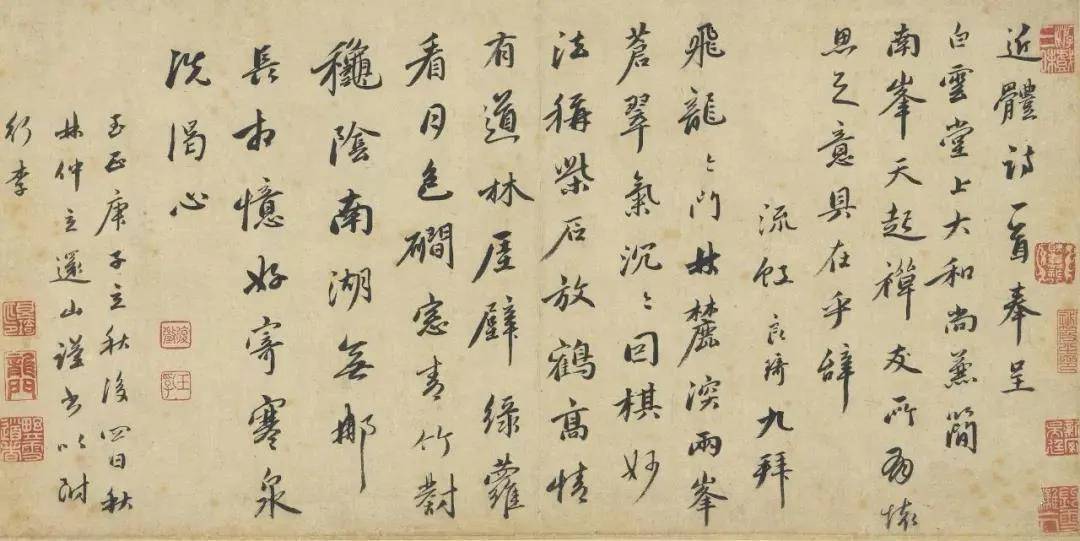 近體詩一首奉呈
白雲堂上大和尚兼簡
南峯天起禪友所為懷
思之意具在乎辭
流虹良琦九拜
飛龍〻門林麓深兩峯
蒼翠氣沉〻因棋妙
法稱柴石放鶴高情
有道林屋壁綠蘿
看月色磵窓青竹對
龝陰南湖無那
長相憶好寄寒泉
洗渴心
至正庚子立秋後四日秋
林仲立還山謹書以附
行李